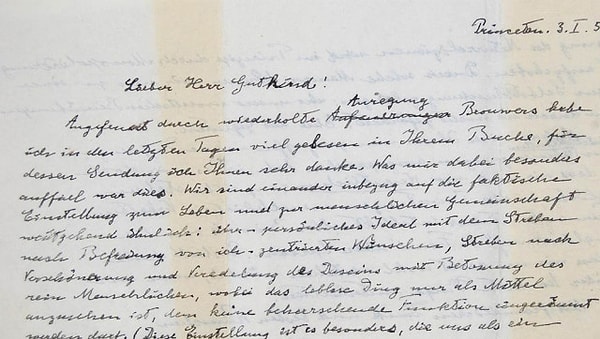 Princeton. 3. I. 5
Lieber Herr Gutkind!
Angefeuert durch wiederholte Aufmunterungen Anregung Brouwers habe
ich in den letzten Tagen viel gelesen in Ihrem Buche, für
dessen Sendung ich Ihnen sehr danke. Was mir dabei besonders
auffiel war dies. Wir sind einander inbezug auf die faktische
Einstellung zum Leben und zur menschlichen Gemeinschaft
weitgehend ähnlich: über-persönliches Ideal mit dem Streben
nach Befreiung von ich-zentrierten Wünschen, Streben nach
Verschönerung und Veredelung des Daseins mit Betonung des
rein Menschlichen, wobei das leblose Ding nur als Mittel
anzusehen ist, dem keine beherrschende Funktion eingeräumt
werden darf. (Diese Einstellung ist es besonders, die uns als ein